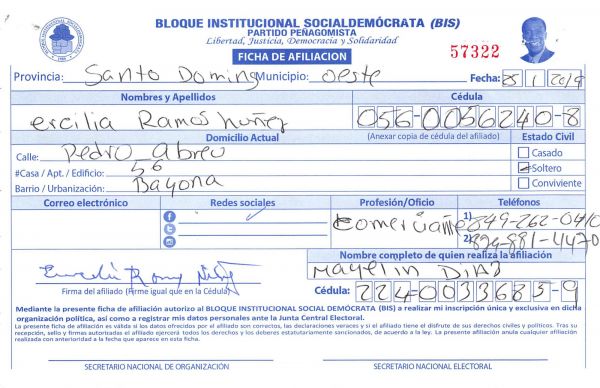 BLOQUE INSTITUCIONAL SOCIALDEMÓCRATA (BIS)
PARTIDO PEÑAGOMISTA
Libertad, Justicia, Democracia y Solidaridad
FICHA DE AFILIACION
57322
Provincia: Santo Doming Municipio: oeste Fecha: 25 1 2019
Nombres y Apellidos Cédula
ercilia Ramos Nuñez 056-0056240-8
Domicilio Actual (Anexar copia de cédula del afiliado) Estado Civil
Calle: Pedro Abreu Casado
#Casa / Apt. / Edificio: 56 Soltero
Barrio / Urbanización: Bayona Conviviente
Correo electrónico Redes sociales Profesión/Oficio Teléfonos
comerciante 1) 849-262-0410
2) 829-881-4470
Nombre completo de quien realiza la afiliación
Mayelin DIAZ
Firma del afiliado (Firme igual que en la Cédula) Cédula: 224-0033683-9
Mediante la presente ficha de afiliación autorizo al BLOQUE INSTITUCIONAL SOCIAL DEMÓCRATA (BIS) a realizar mi inscripción única y exclusiva en dicha
organización política, así como a registrar mis datos personales ante la Junta Central Electoral.
La presente ficha de afiliación es válida si los datos ofrecidos por el afiliado son correctos, las declaraciones veraces y si el afiliado tiene el disfrute de sus derechos civiles y políticos. Tras su
recepción, sello y firmas autorizadas el afiliado ejercerá todos los derechos y los deberes estatutariamente sancionados, de acuerdo a la ley. La presente afiliación anula cualquier afiliación
realizada con anterioridad a la fecha que aparece en esta ficha.
SECRETARIO NACIONAL DE ORGANIZACIÓN SECRETARIO NACIONAL ELECTORAL